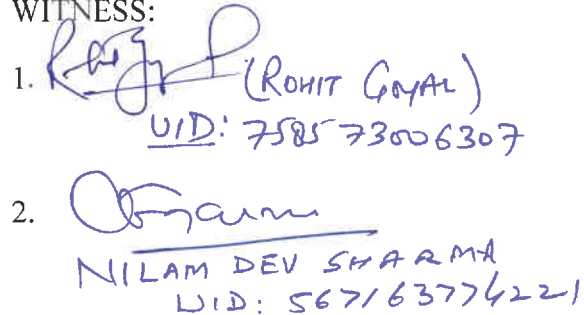 WITNESS:
1. (ROHIT GOYAL)
UID: 7585 73006307
2.
NILAM DEV SHARMA
UID: 567163774221